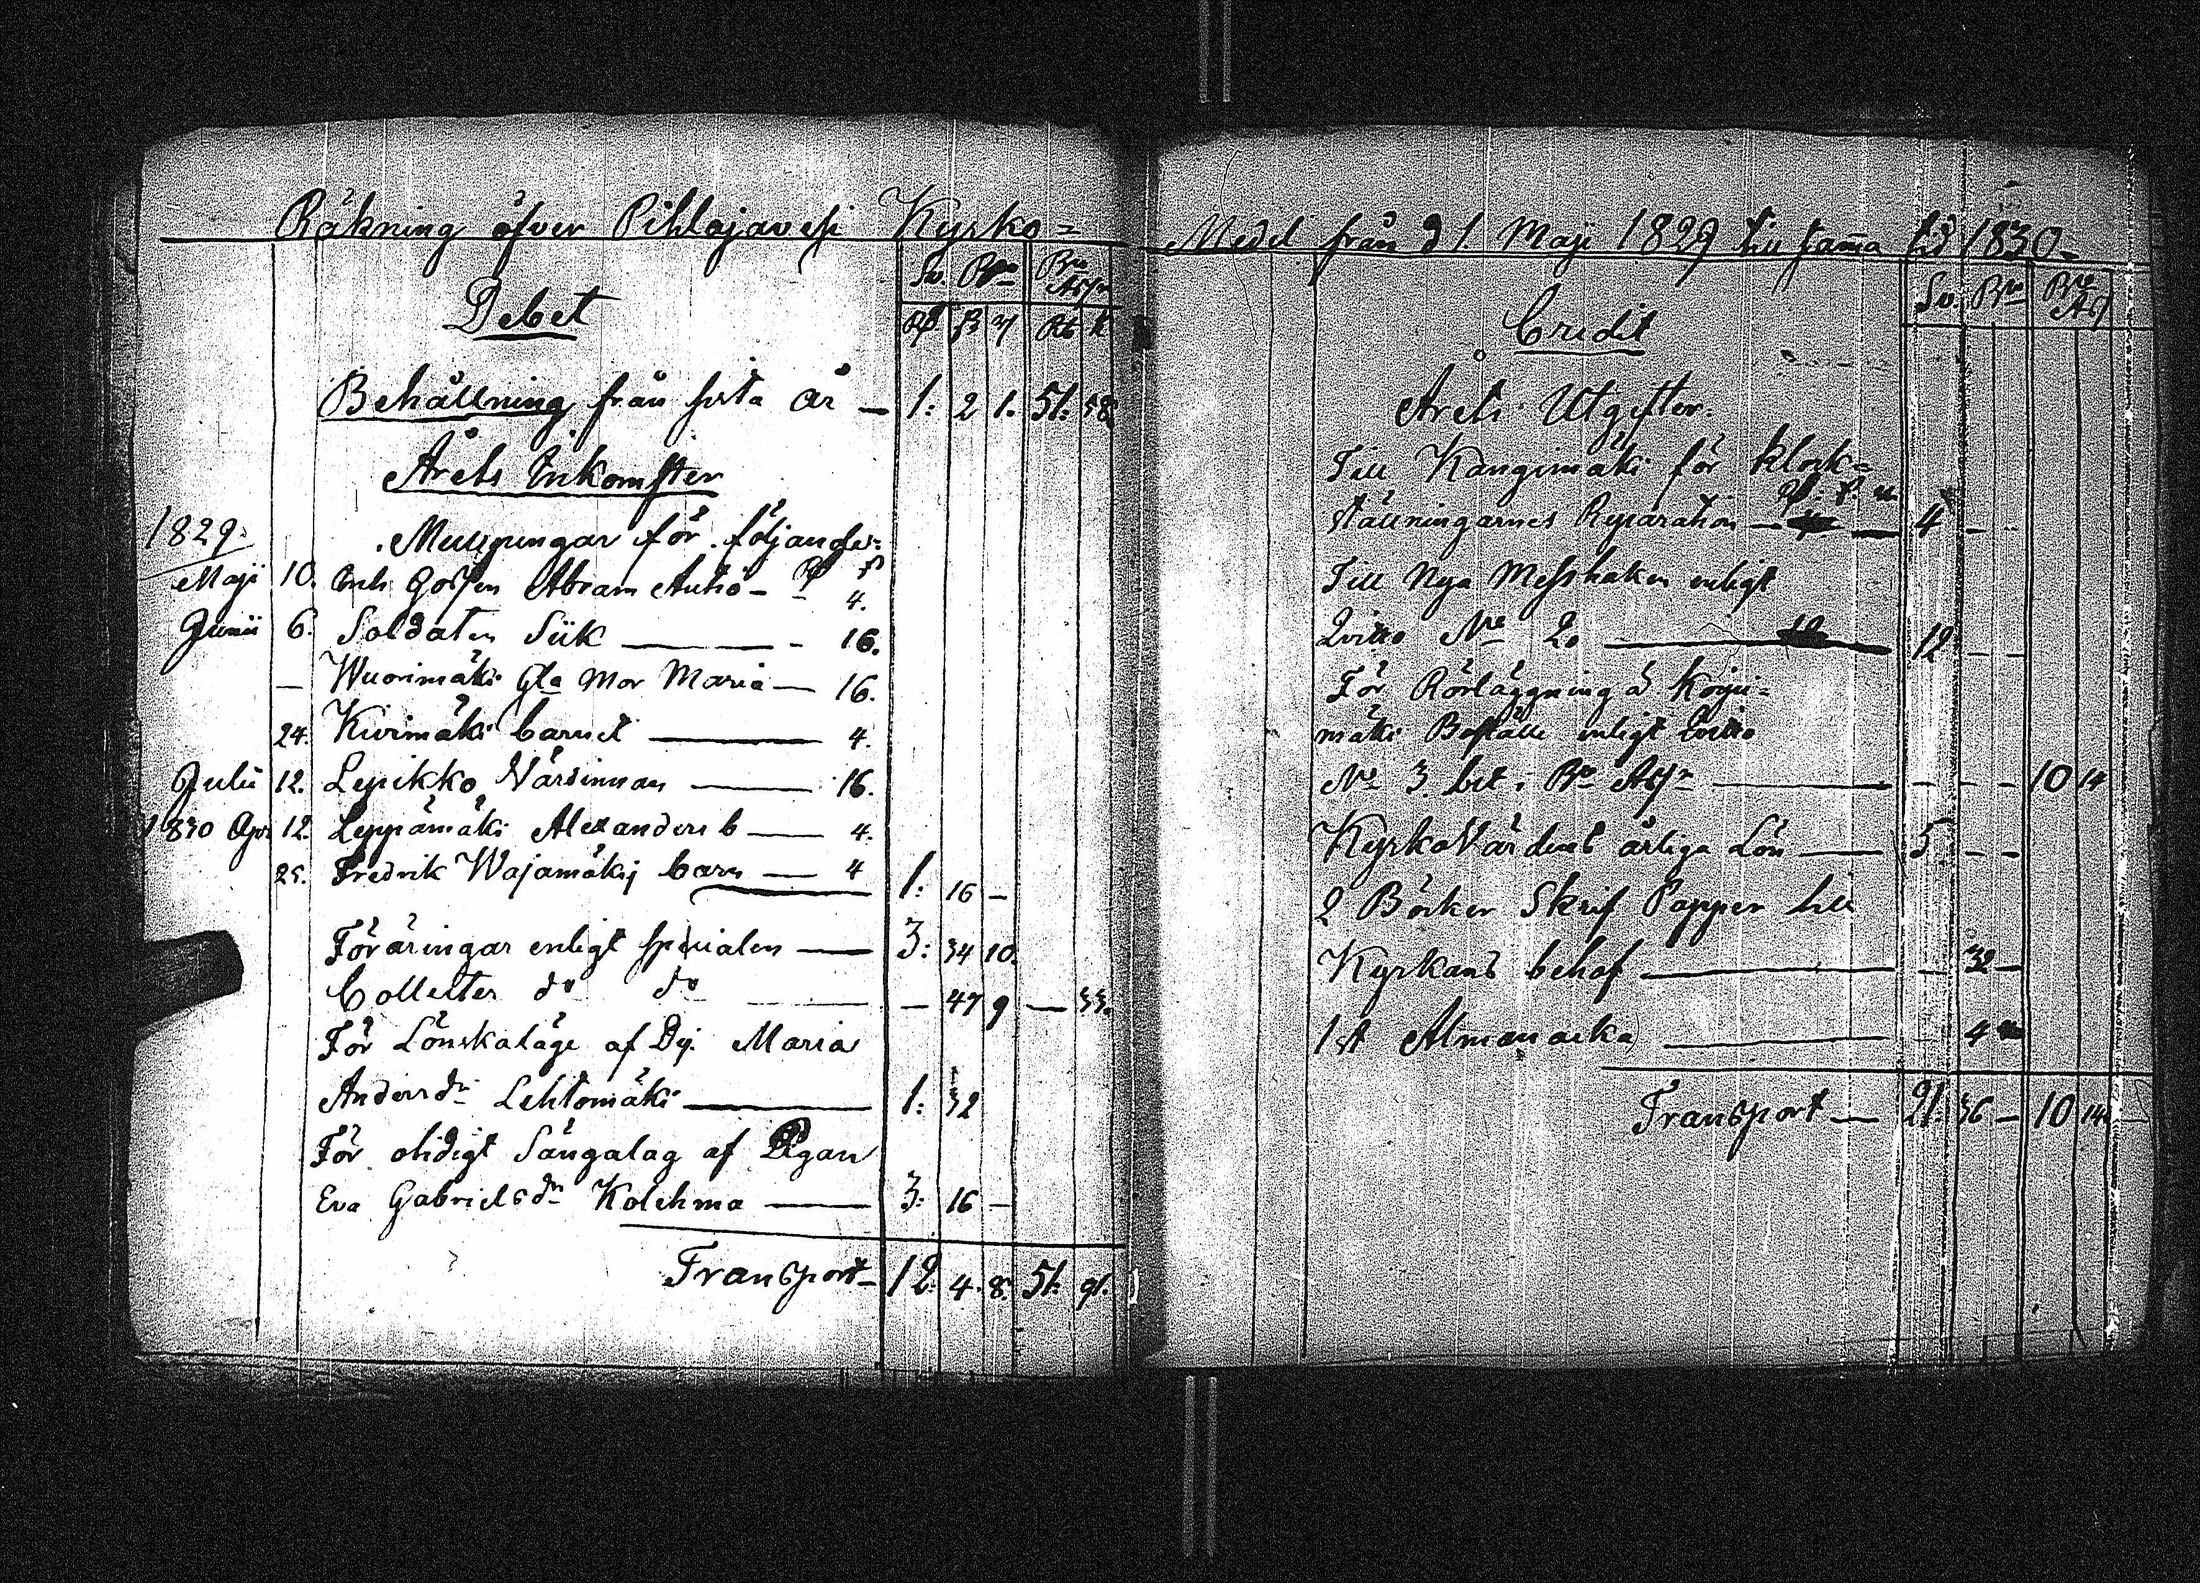 Räkning öfver Pihlajavesi Kyrko=
Sv. Bco Bco Assr
Debet
Rd ß r Rb k
Behållning från sista år — 1: 2 1. 51: 58
Årets Inkomster
1829. Mullpengar för följande:
Maji 10. Inh. Gossen Abram Autio - - 4.
Junii 6. Soldaten Siik — 16.
— Wuorimäki Gla Mor Maria — 16.
24. Kivimäki barnet — 4.
Julii 12. Lepikko Värdinnan — 16.
1830 Apr 12. Leppämäki Alexanders b — 4.
25. Fredrik Wajamäkij barn — 4 1: 16 —
Föräringar enligt specialen — 3: 34 10.
Collecter do do — — 47 9 — 33.
För Lönskaläge af Pig. Maria
Andersdr Lehtomäki — 1: 32
För otidigt Sängalag af Pigan
Eva Gabrielsdr Kolehma — 3: 16 —
Transport — 12: 4. 8. 51. 91.
Medel från d 1 Maji 1829 till samma tid 1830 —
Sv. Bco Bco Ass
Credit
Årets Utgifter.
Till Kangimäki för klock=
ställningarnes Reparation — 4 — —
Till Nya Messhaken enligt
Qvitto No 2. — 12 — —
För Rörläggning å Koju=
mäki Boställe enligt Qvitto
No 3. bet. i Bco Assr — — — — 10 14
KyrkoVärdens årliga Lön — 5 — —
2 Böcker Skrif Papper till
Kyrkans behof — — 32 —
1 st Almanacka — 4
Transport — 21. 36 — 10 14. —